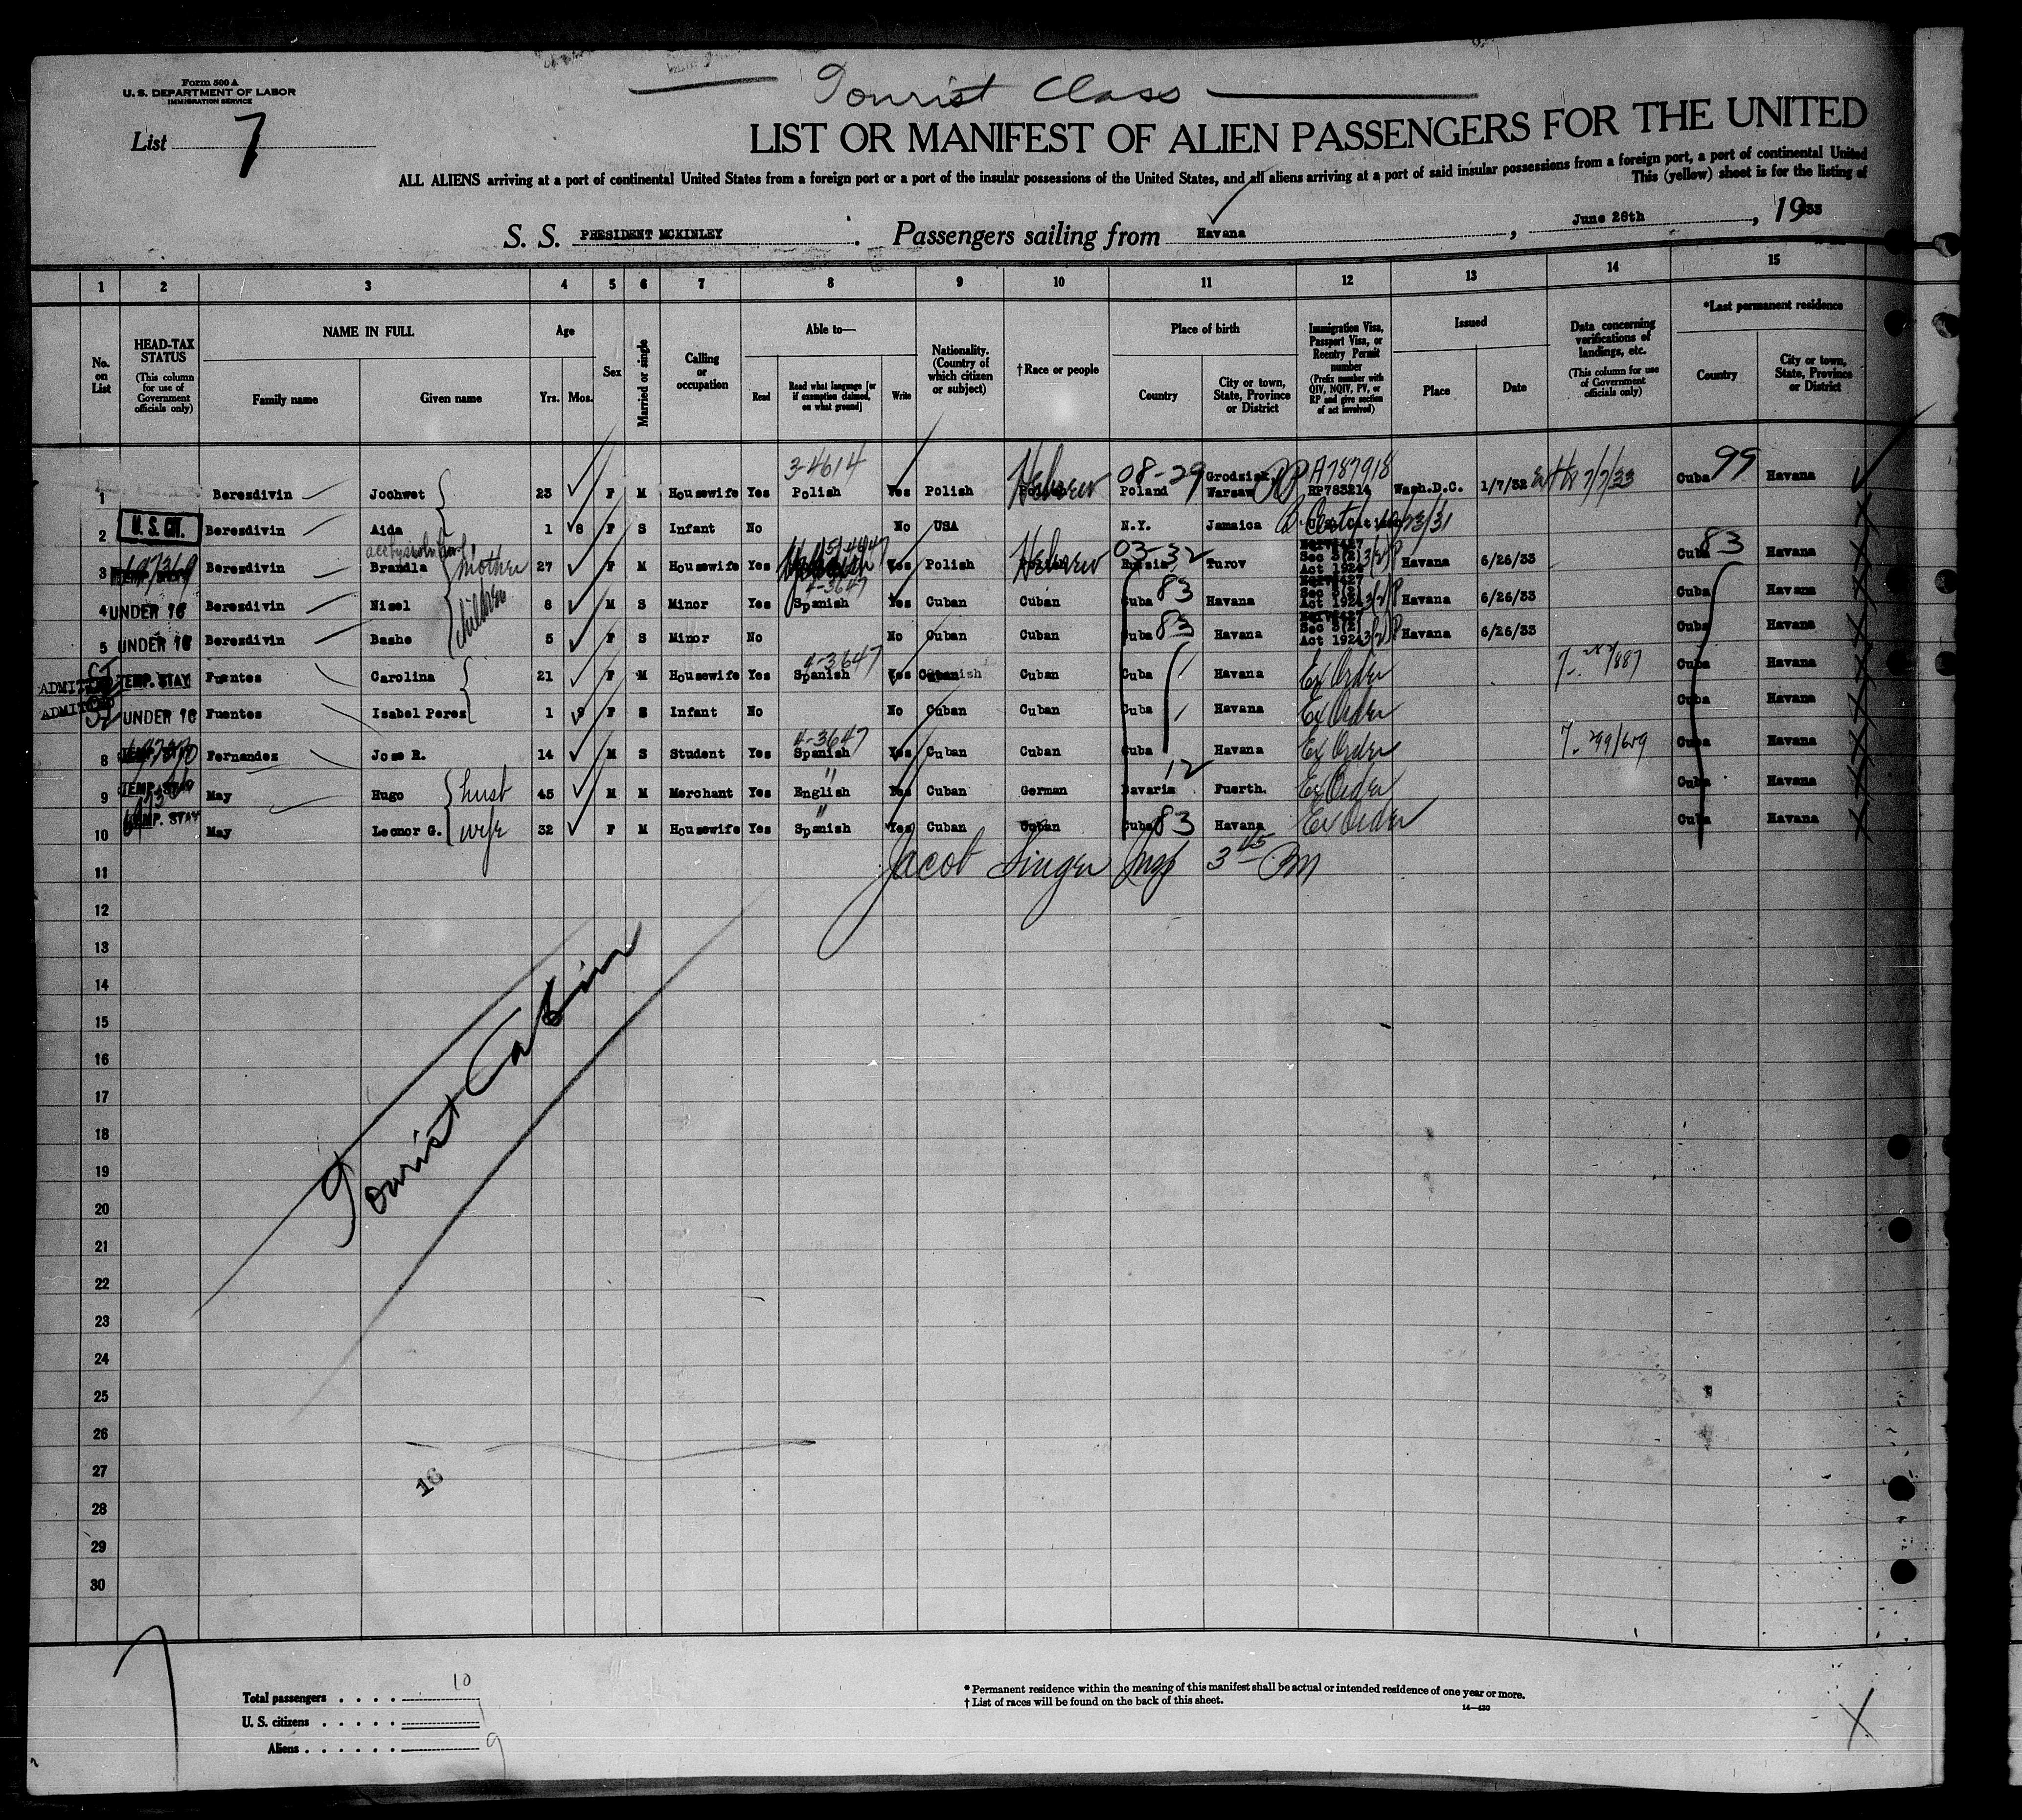 Form 500 A
U. S. DEPARTMENT OF LABOR
IMMIGRATION SERVICE
Tourist Class
List 7
LIST OR MANIFEST OF ALIEN PASSENGERS FOR THE UNITED
ALL ALIENS arriving at a port of continental United States from a foreign port or a port of the insular possessions of the United States, and all aliens arriving at a port of said insular possessions from a foreign port, a port of continental United
This (yellow) sheet is for the listing of
S. S. PRESIDENT MCKINLEY Passengers sailing from Havana, June 28th, 1933
1 2 3 4 5 6 7 8 9 10 11 12 13 14 15
No. on List
HEAD-TAX STATUS (This column for use of Government officials only)
NAME IN FULL
Family name Given name
Age
Yrs. Mos.
Sex
Married or single
Calling or occupation
Able to—
Read Read what language [or if exemption claimed, on what ground] Write
Nationality. (Country of which citizen or subject)
†Race or people
Place of birth
Country City or town, State, Province or District
Immigration Visa, Passport Visa, or Reentry Permit number (Prefix number with QIV, NQIV, PV, or RP and give section of act involved)
Issued
Place Date
Data concerning verifications of landings, etc. (This column for use of Government officials only)
*Last permanent residence
Country City or town, State, Province or District
3-4614 Hebrew 08-29 Grodzisk RP A787918 99
1 Berezdivin Jochwet 23 F M Housewife Yes Polish Yes Polish Poland Warsaw RP783214 Wash.D.C. 1/7/32 7/7/33 Cuba Havana
2 U. S. CIT. Berezdivin Aida 1 8 F S Infant No No USA N.Y. Jamaica
3 Berezdivin Brandla mother 27 F M Housewife Yes Yes Polish Hebrew 03-32 Russia Turov Sec 3(2) Act 1924 Havana 6/26/33 Cuba 83 Havana
4-3647
4 UNDER 16 Berezdivin Nisel children 8 M S Minor Yes Spanish Yes Cuban Cuban Cuba 83 Havana Sec 3(2) Act 1924 3(2) Havana 6/26/33 Cuba Havana
5 UNDER 16 Berezdivin Bashe 5 F S Minor No No Cuban Cuban Cuba 83 Havana Sec 3(2) Act 1924 3(2) Havana 6/26/33 Cuba Havana
4-3647
ADMITTED TEMP. STAY Fuentes Carolina 21 F M Housewife Yes Spanish Yes Cuban Cuba Havana Ex Order Cuba Havana
ADMITTED UNDER 16 Fuentes Isabel Perez 1 9 F S Infant No No Cuban Cuban Cuba Havana Ex Order Cuba Havana
4-3647
8 Fernandez Jose R. 14 M S Student Yes Spanish Yes Cuban Cuban Cuba Havana Ex Order Cuba Havana
9 TEMP. STAY May Hugo husb 45 M M Merchant Yes English Yes Cuban German 12 Bavaria Fuerth. Ex Order Cuba Havana
10 TEMP. STAY May Leonor G. wife 32 F M Housewife Yes Spanish Yes Cuban Cuban Cuba 83 Havana Ex Order Cuba Havana
11 Jacob Singer Insp 3 45 PM
12
13
14
15
16
17
18
19
20
21
22
23
24
25
26
27
28
29
30
Tourist Cabin
16
Total passengers . . . . 10
U. S. citizens . . . . . 1
Aliens . . . . . . 9
* Permanent residence within the meaning of this manifest shall be actual or intended residence of one year or more.
† List of races will be found on the back of this sheet.
14—430